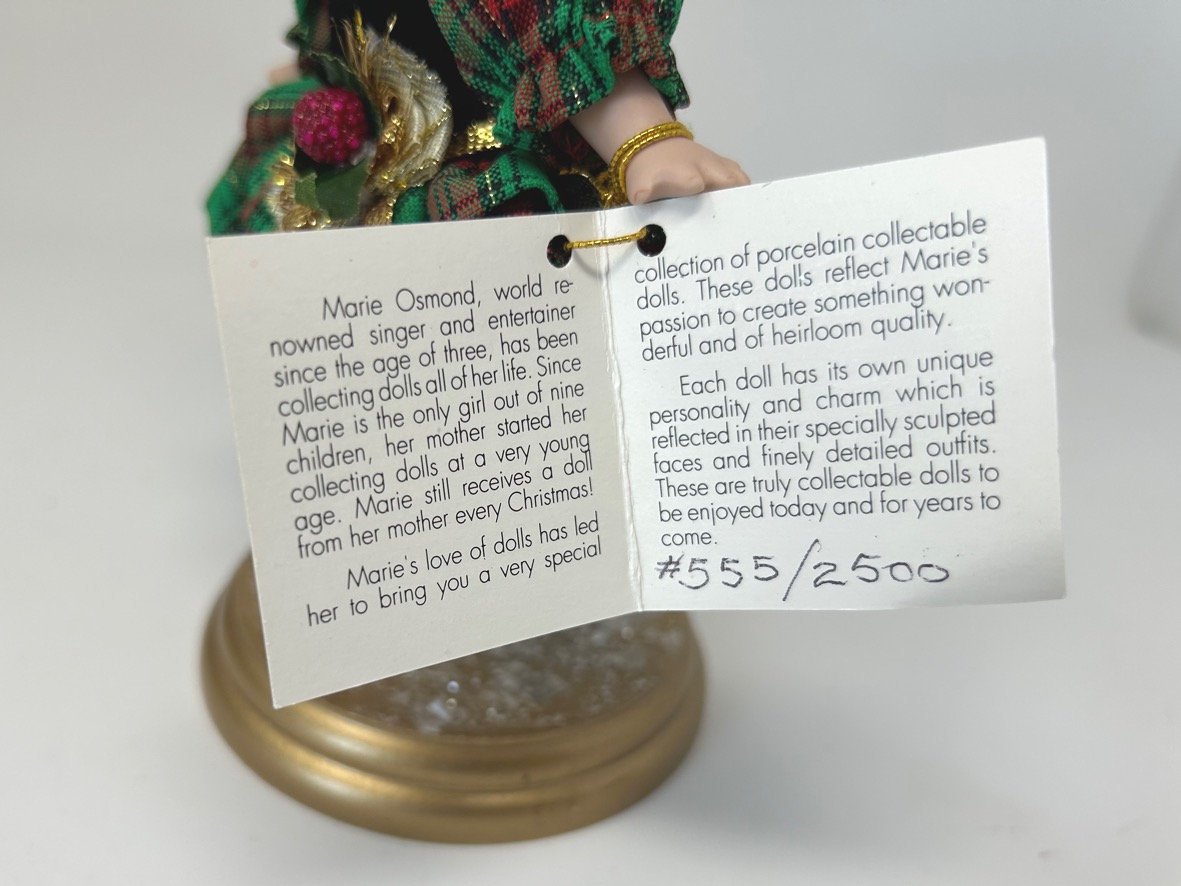 Marie Osmond, world re-
nowned singer and entertainer
since the age of three, has been
collecting dolls all of her life. Since
Marie is the only girl out of nine
children, her mother started her
collecting dolls at a very young
age. Marie still receives a doll
from her mother every Christmas!
Marie's love of dolls has led
her to bring you a very special
collection of porcelain collectable
dolls. These dolls reflect Marie's
passion to create something won-
derful and of heirloom quality.
Each doll has its own unique
personality and charm which is
reflected in their specially sculpted
faces and finely detailed outfits.
These are truly collectable dolls to
be enjoyed today and for years to
come.
#555/2500